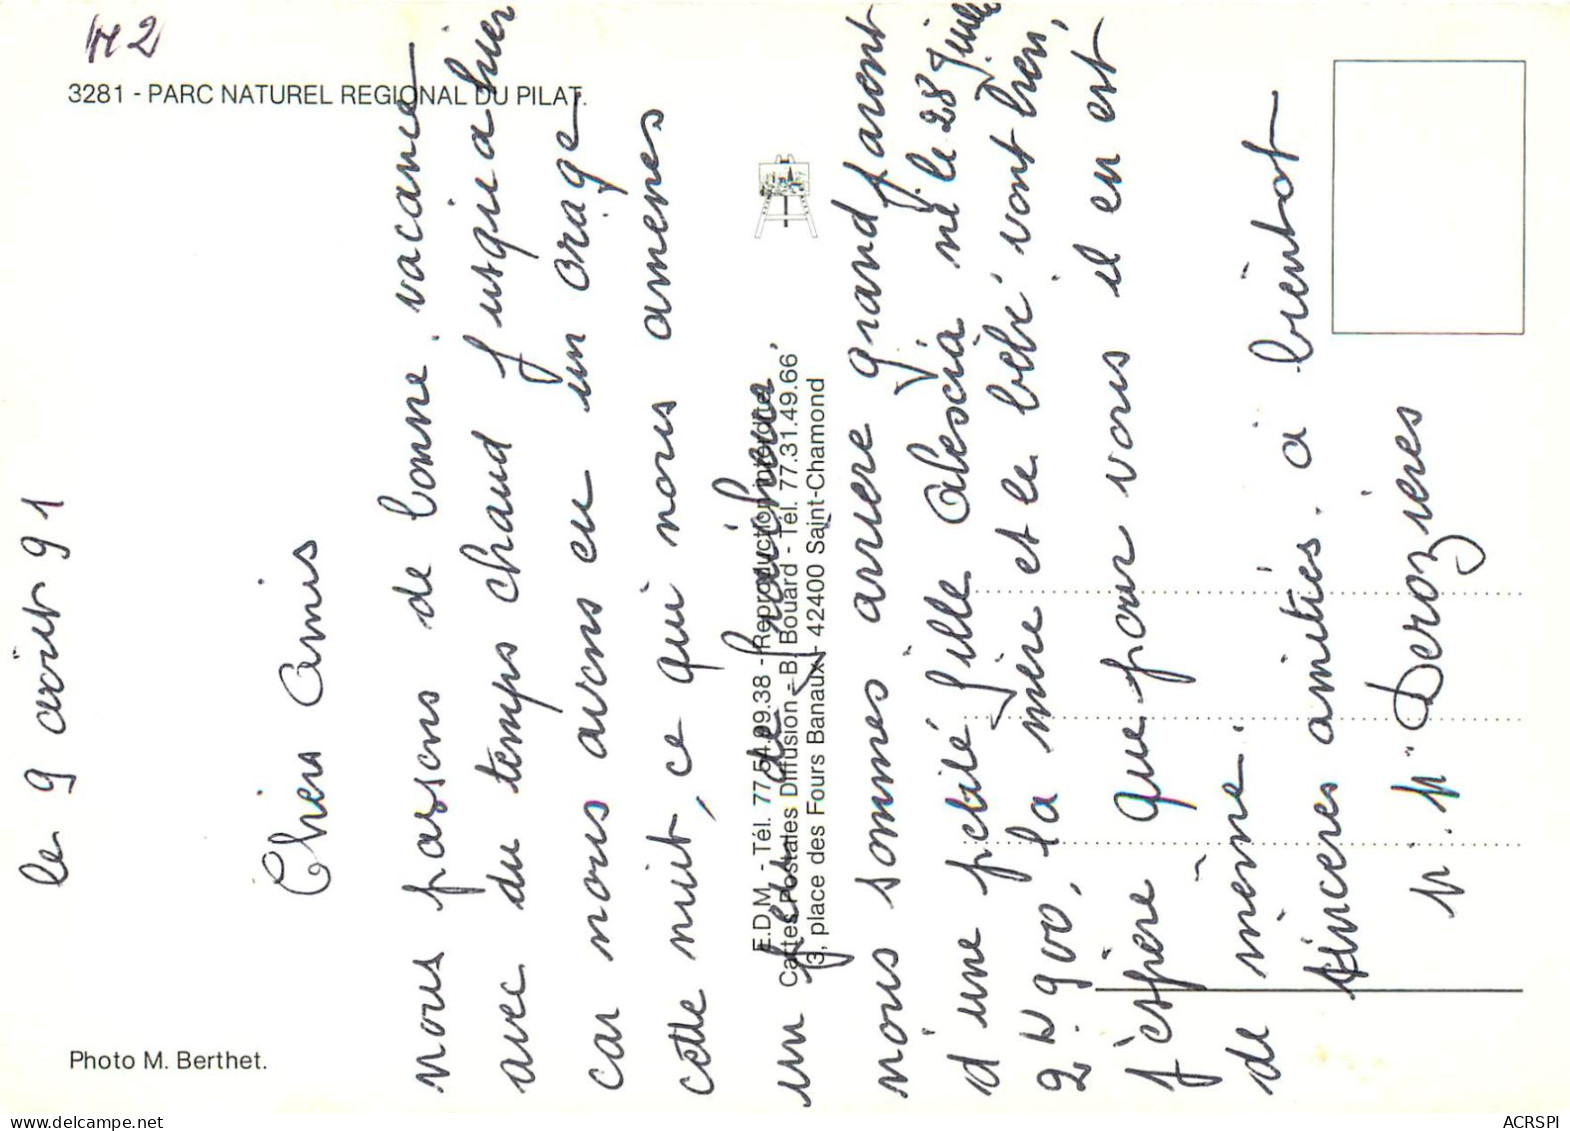 H2
3281 - PARC NATUREL REGIONAL DU PILAT.
le 9 août 91
Chers Amis
nous passons de bonne vacance
avec du temps chaud jusqu'a hier
car nous avons eu un orage
cette nuit, ce qui nous amenes
un peu de fraicheur
nous sommes arriere grand parent
d'une petite fille Alescia né le 28 Juillet
2k900, la mère et le bébé vont bien,
j'espère que pour vous il en est
de même.
sinceres amitiés. à bientot
Derozieres
E.D.M. - Tél. 77.51.99.38 - Reproduction interdite
Cartes Postales Diffusion - B. Bouard - Tél. 77.31.49.66
3, place des Fours Banaux - 42400 Saint-Chamond
Photo M. Berthet.
www.delcampe.net
ACRSPI